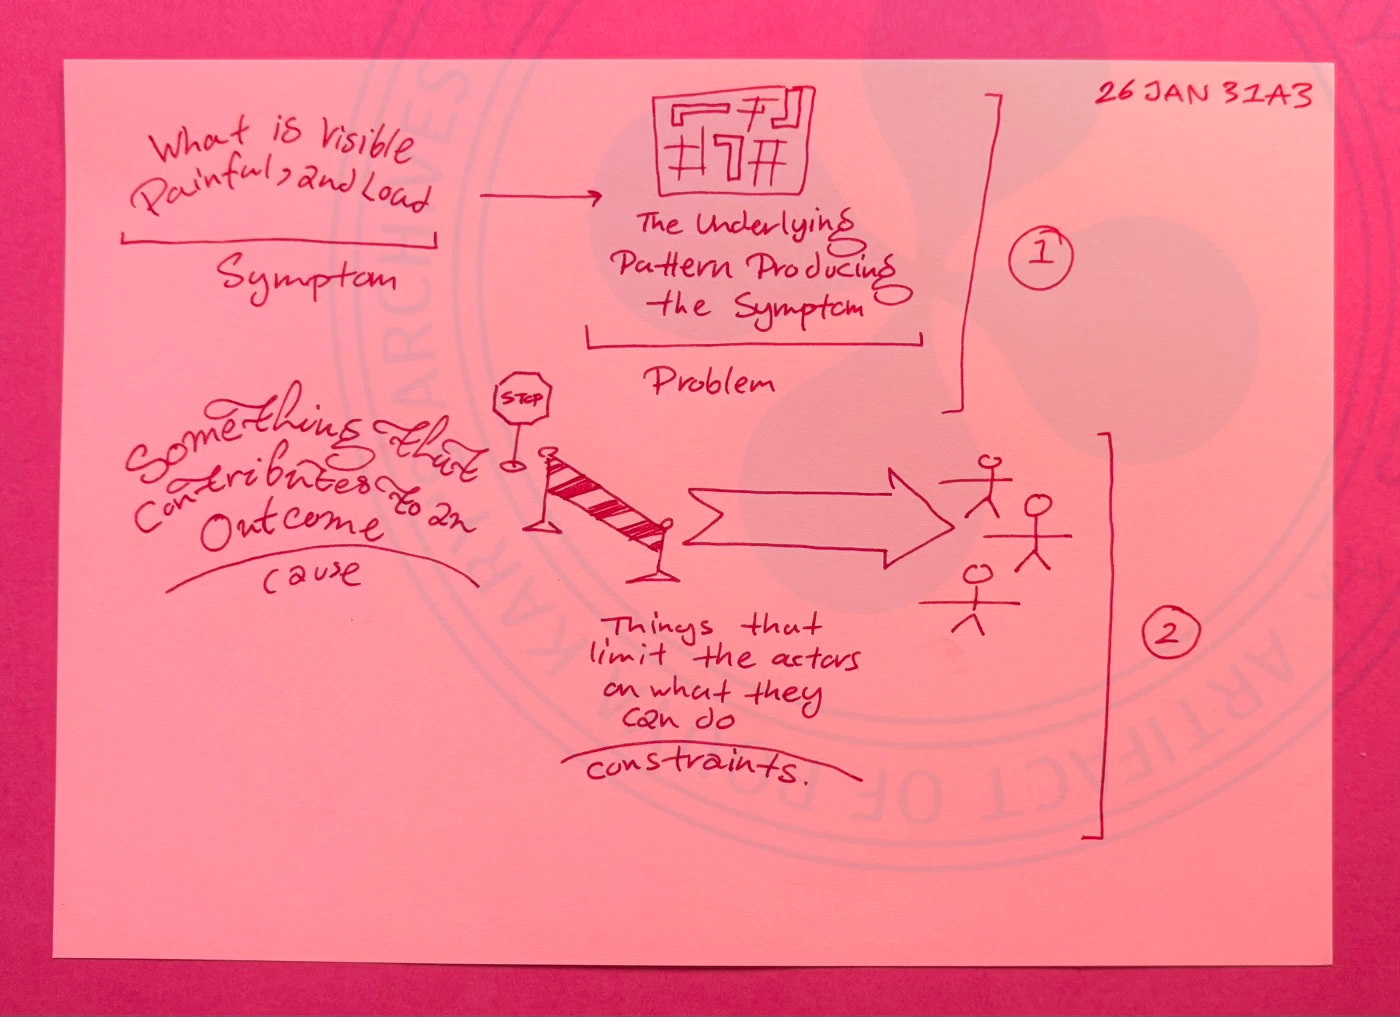 26 JAN 31A3
What is visible
Painful, and Loud
Symptom
The Underlying
Pattern Producing
the Symptom
Problem
1
STOP
Something that
contributes to an
Outcome
cause
Things that
limit the actors
on what they
can do
constraints.
2
ARTIFACT OF
ARCHIVES